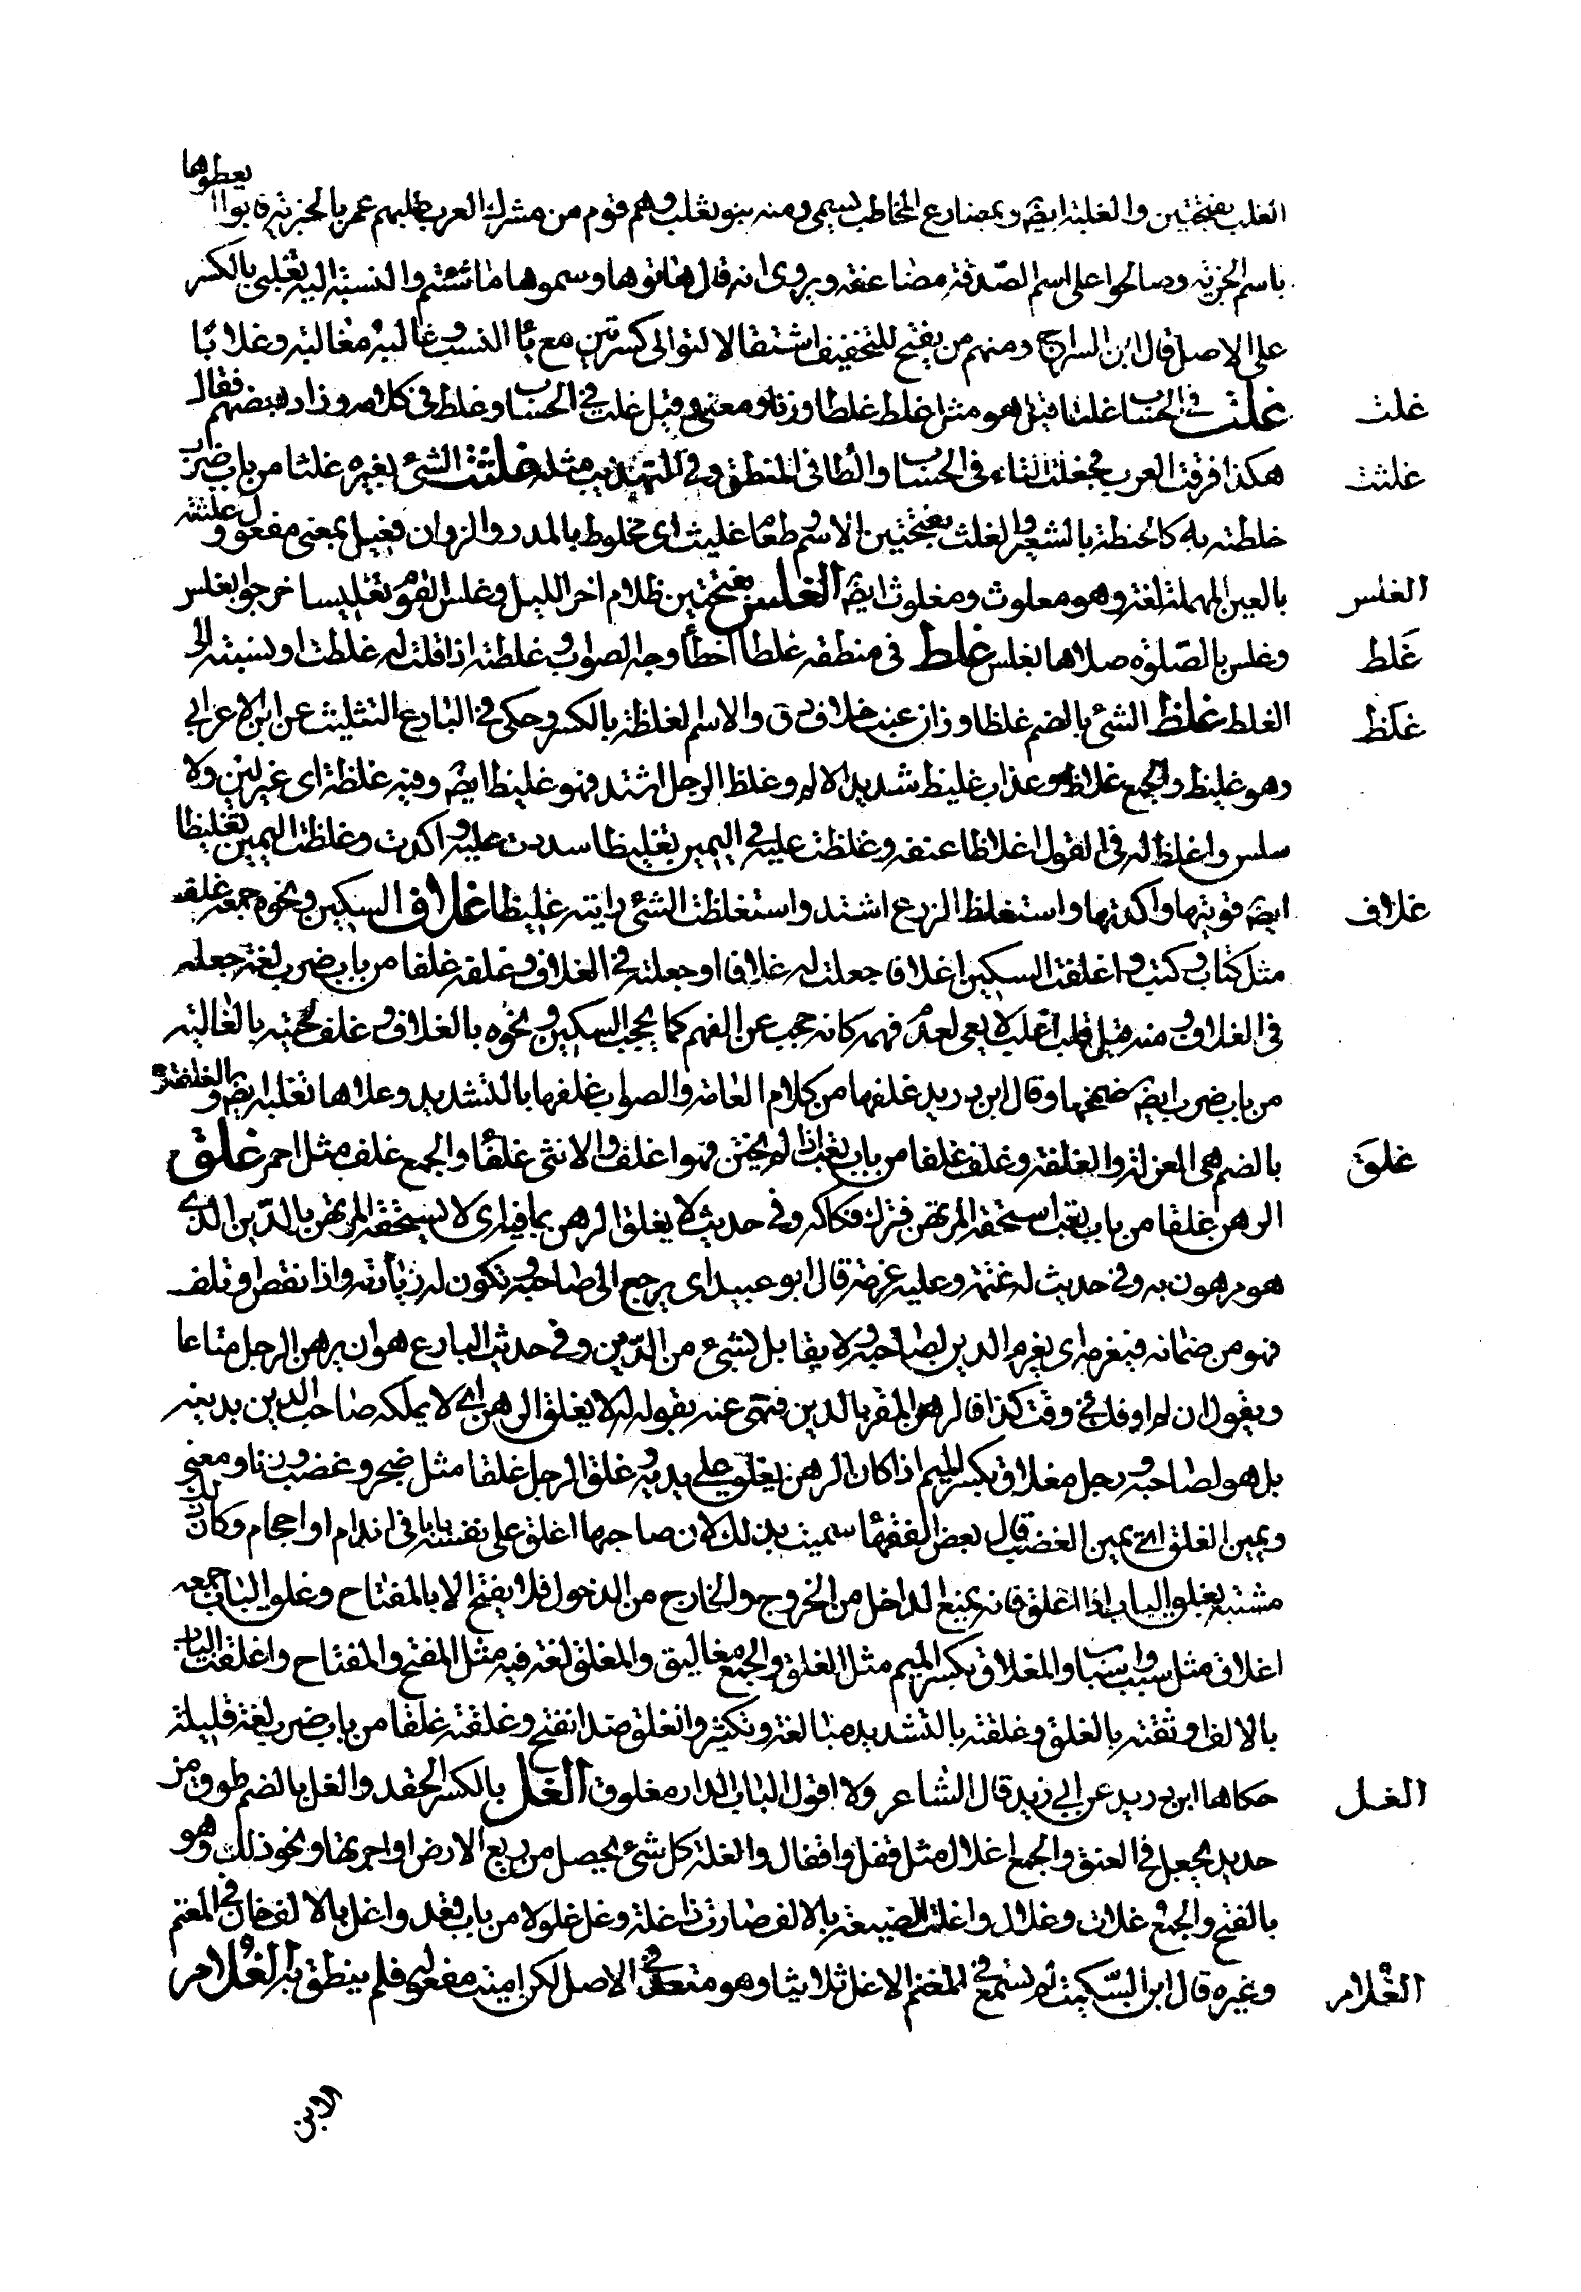 الغلب بفتحتين والغلبة ايضه وبمضارع المخاطب يسمى ومنه بنو تغلب وهم قوم من مشركى العرب طلبهم عمر بالجزية فابوا ان يعطوها
باسم الجزية وصالحوا على اسم الصّدقة مضاعفة ويروى انه قال هاتوها وسموها ما شئتم والنسبة اليه تغلبى بالكسر
على الاصل قال ابن السراج ومنهم من يفتح للتخفيف استثقالا لتوالى كسرتين مع يا النسب وغالبه مغالبة وغلابا
غلت غلت فى الحساب غلتا قيل هو مثل غلط غلطا وزنا ومعنى وقيل غلت فى الحساب وغلط فى كلامه وزاد بعضهم فقال
غلثت هكذا فرقت العرب فجعلت التاء فى الحساب والطا فى المنطق وفى التهذيب مثله غلثت الشئ بغيره غلثا من باب ضرب
خلطته به كالحنطة بالشعير والغلث بفتحتين الاسم وطعام غليث اى مخلوط بالمدر والزوان فعيل بمعنى مفعول وعلثته
الغلس بالعين المهملة لغة وهو معلوث ومغلوث ايضه الغلس بفتحتين ظلام اخر الليل وغلس القوم تغليسا خرجوا بغلس
غَلط وغلس بالصّلوة صلاها بغلس غلط فى منطقه غلطا اخطأ وجه الصواب وغلطته انا قلت له غلطت او نسبته الى
غلظ الغلط غلظ الشئ بالضم غلظا وزان عنب خلاف دق والاسم الغلظة بالكسر وحكى فى البارع التثليث عن ابن الاعرابى
وهو غليظ والجمع غلاظ وعذاب غليظ شديد الالم وغلظ الرجل اشتد فهو غليظ ايضه وفيه غلظة اى غير لين ولا
سلس واغلظ له فى القول اغلاظا عنفه وغلظت عليه فى اليمين تغليظا شددت عليه واكدت وغلظت اليمين تغليظا
غلاف ايضه قويتها واكدتها واستغلظ الزرع اشتد واستغلظت الشئ رايته غليظا غلاف السكين ونحوه جمعه غلف
مثل كتاب وكتب واغلفت السكين اغلافا جعلت له غلافا او جعلته فى الغلاف وغلفته غلفا من باب ضرب لغة جعلته
فى الغلاف ومنه قيل قلب اغلف لا يعى لعدم فهمه كانه حجب عن الفهم كما يحجب السكين ونحوه بالغلاف وغلف لحيته بالغالية
من باب ضرب ايضه ضمخها وقال ابن دريد غلفها من كلام العامة والصواب غلفها بالتشديد وعلاها تغلية ايضه والغلفة
غلقَ بالضم هى الغرلة والقلفة وغلف غلفا من باب تعب اذا لم يختن فهو اغلف والانثى غلفا والجمع غلف مثل احمر غلق
الرهن غلقا من باب تعب استحقه المرتهن فترك فكاكه وفى حديث لا يغلق الرهن بما فيه اى لا يستحقه المرتهن بالدّين الذى
هو مرهون به وفى حديث له غنمه وعليه غرمه قال ابو عبيد اى يرجع الى صاحبه وتكون له زيادته واذا نقص او تلف
فهو من ضمانه فيغرمه اى يغرم الدين لصاحبه ولا يقابل بشئ من الدّين وفى حديث البارع هو ان يرهن الرجل متاعا
ويقول ان لم اوفك فى وقت كذا فالرهن لك بالدين فنهى عنه بقوله لا يغلق الرهن اى لا يملكه صاحب الدين بدينه
بل هو لصاحبه ورجل مغلاق بكسر الميم اذا كان الرهن يغلق على يديه وغلق الرجل غلقا مثل ضجر وغضب وزنا ومعنى
ويمين الغلق اى يمين الغضب قال بعض الفقها سميت بذلك لان صاحبها اغلق على نفسه بابا فى اقدام او احجام وكان ذلك
مشتبه بغلق الباب اذا اغلق فانه يمنع الداخل من الخروج والخارج من الدخول فلا يفتح الا بالمفتاح وغلق الباب جمعه
اغلاق مثل سبب واسباب والمغلاق بكسر الميم مثل الغلق والجمع مغاليق والمغلق لغة فيه مثل المفتح والمفتاح واغلقت الباب
بالالف اوثقته بالغلق وغلقته بالتشديد مبالغة وتكثير وانغلق ضد انفتح وغلقته غلقا من باب ضرب لغة قليلة
الغل حكاها ابن دريد عن ابى زيد قال الشاعر ولا اقول لباب الدار مغلوق الغل بالكسر الحقد والغل بالضم طوق من
حديد يجعل فى العنق والجمع اغلال مثل قفل واقفال والغلة كل شئ يحصل من ريع الارض او اجرتها ونحو ذلك وهو
بالفتح والجمع غلات وغلال واغلت الضيعة بالالف صارت ذا غلة وغل غلولا من باب قعد واغل بالالف خان فى المغنم
الغُلام وغيره قال ابن السّكيت لم نسمع فى المغنم الا غل ثلاثيا وهو متعد فى الاصل لكن اميت مفعوله فلم ينطق به الغُلام
الابن